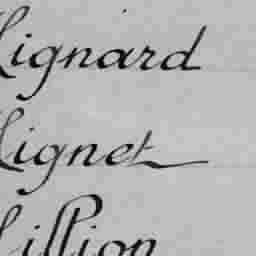 Lignard
Lignet
Lillion